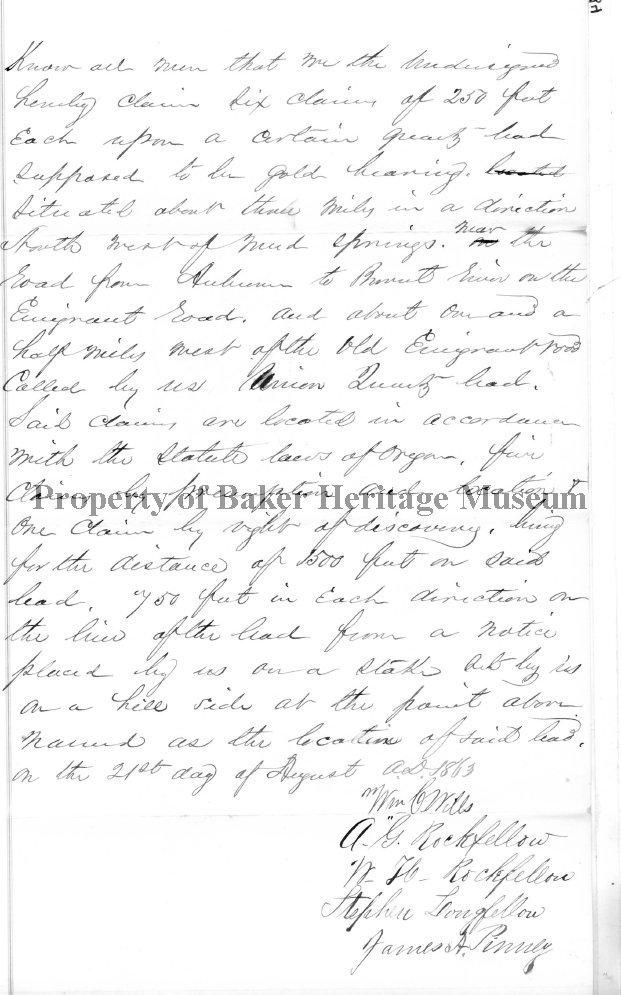 Know all men that we the Undersigned
hereby claim six claims of 250 feet
Each upon a certain quartz lead
supposed to be gold bearing. located
situated about three miles in a direction
North west of mud springs. near the
road from Auburn to Burnt River on the
Emigrant road. and about One and a
half miles west of the Old Emigrant road
Called by us Union Quartz lead.
Said claims are located in accordance
with the statute laws of Oregon, five
claims by preemption and location &
Property of Baker Heritage Museum
One claim by right of discovery, being
for the distance of 1500 feet on said
lead, 750 feet in Each direction on
the line of the lead from a notice
placed by us on a stake set by us
on a hill side at the point above
named as the location of said lead.
on the 21st day of August A.D. 1863
Wm C Wills
A. G. Rockfellow
W- H- Rockfellow
Stephen Longfellow
James A. Pinney